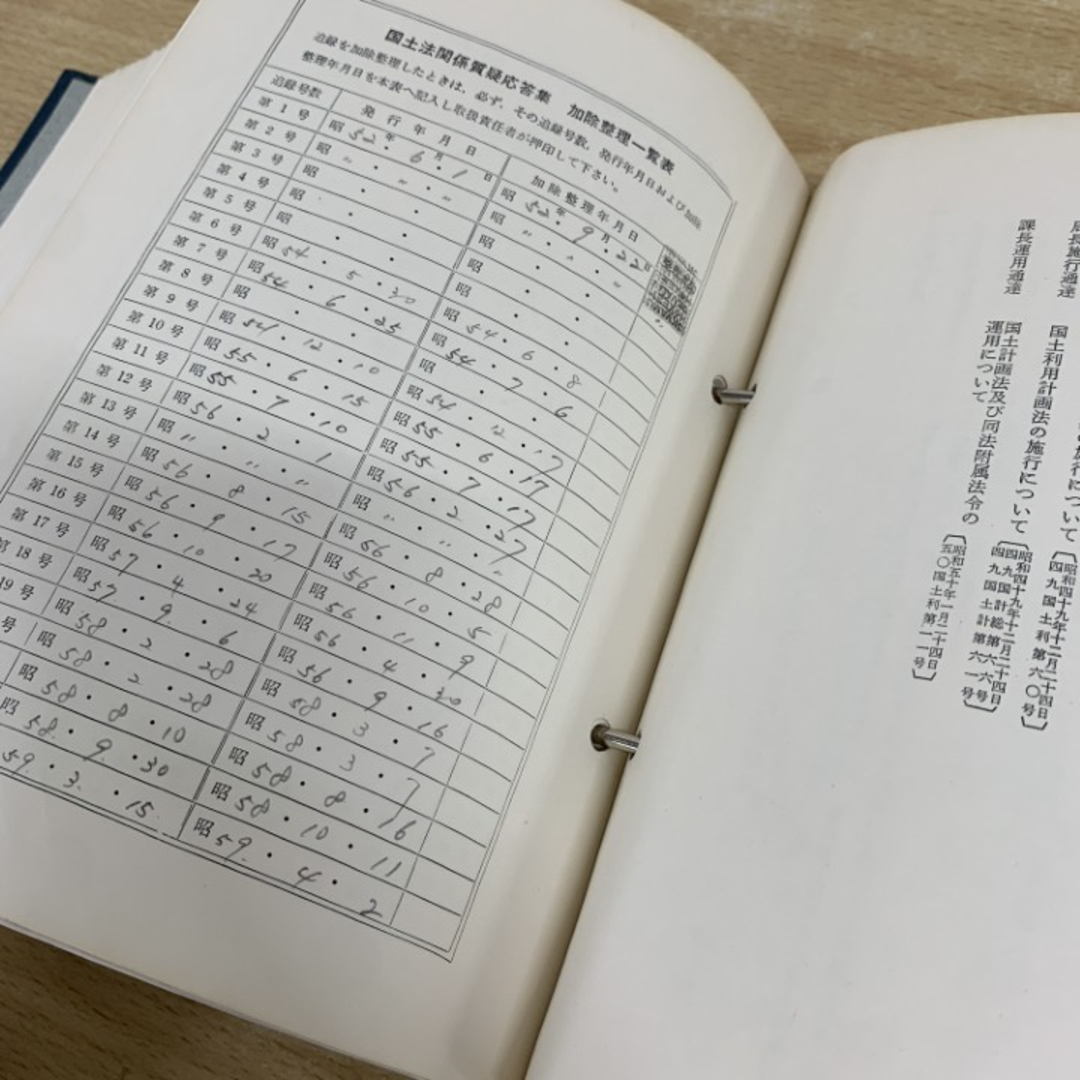 国土法関係質疑応答集 加除整理一覧表
追録を加除整理したときは、必ず、その追録号数、発行年月日および加除
整理年月日を本表へ記入し取扱責任者が押印して下さい。
追録号数 発行年月日 加除整理年月日
第1号 昭 52年・6月・1日 昭 52年・9月・22日
第2号 昭 〃・〃・〃 昭 〃・〃・〃 〃
第3号 昭 ・ ・ 昭 ・ ・
第4号 昭 ・ ・ 昭 ・ ・
第5号 昭 ・ ・ 昭 ・ ・
第6号 昭 54・5・30 昭 54・6・8
第7号 昭 54・6・25 昭 54・7・6
第8号 昭 54・12・10 昭 54・12・17
第9号 昭 55・6・15 昭 55・6・17
第10号 昭 55・7・10 昭 55・7・17
第11号 昭 56・2・1 昭 56・2・27
第12号 昭 〃・〃・〃 昭 〃・〃・〃
第13号 昭 56・8・15 昭 56・8・28
第14号 昭 56・9・17 昭 56・10・5
第15号 昭 56・10・20 昭 56・11・9
第16号 昭 57・4・24 昭 56・4・30
第17号 昭 57・9・6 昭 56・9・16
第18号 昭 58・2・28 昭 58・3・7
19号 昭 58・2・28 昭 58・3・7
号 昭 58・8・10 昭 58・8・16
昭 58・9・30 昭 58・10・11
59・3・15 昭 59・4・2
局長施行通達
の施行について
課長運用通達 国土利用計画法の施行について〔昭和四十九年十二月二十四日
四九国土利第六〇号〕
国土計画法及び同法附属法令の
運用について
〔昭和四十九年十二月二十四日
四九国計総第六六号
国土計第六一号〕
〔昭和五十年一月二十四日
五〇国土利第一一号〕